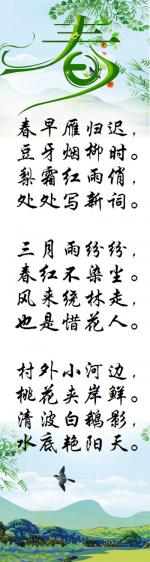 春
春早雁归迟，
豆牙烟柳时。
梨霜红雨俏，
处处写新词。
三月雨纷纷，
春红不染尘。
风来绕林走，
也是惜花人。
村外小河边，
桃花夹岸鲜。
清波白鹅影，
水底艳阳天。